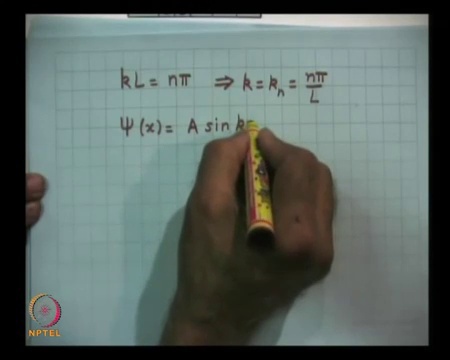 kL = nπ ⇒ k = kₙ = nπ/L
Ψ(x) = A sin k
NPTEL